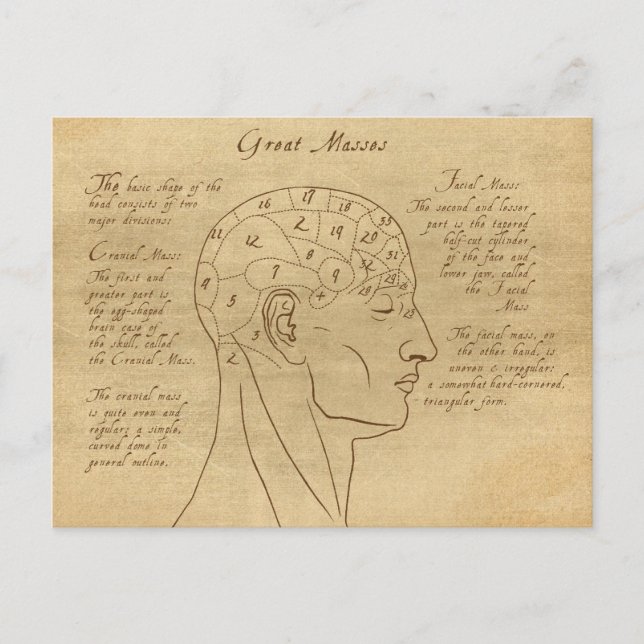 Great Masses
The basic shape of the
head consists of two
major divisions:
Cranial Mass:
The first and
greater part is
the egg-shaped
brain case of
the skull, called
the Cranial Mass.
The cranial mass
is quite even and
regular; a simple,
curved dome in
general outline.
Facial Mass:
The second and lesser
part is the tapered
half-cut cylinder
of the face and
lower jaw, called
the Facial
Mass
The facial mass, on
the other hand, is
uneven & irregular:
a somewhat hard-cornered,
triangular form.
16
17
18
35
11
12
2
19
20
31
8
32
4
5
7
9
28
29
26
+
23
3
2